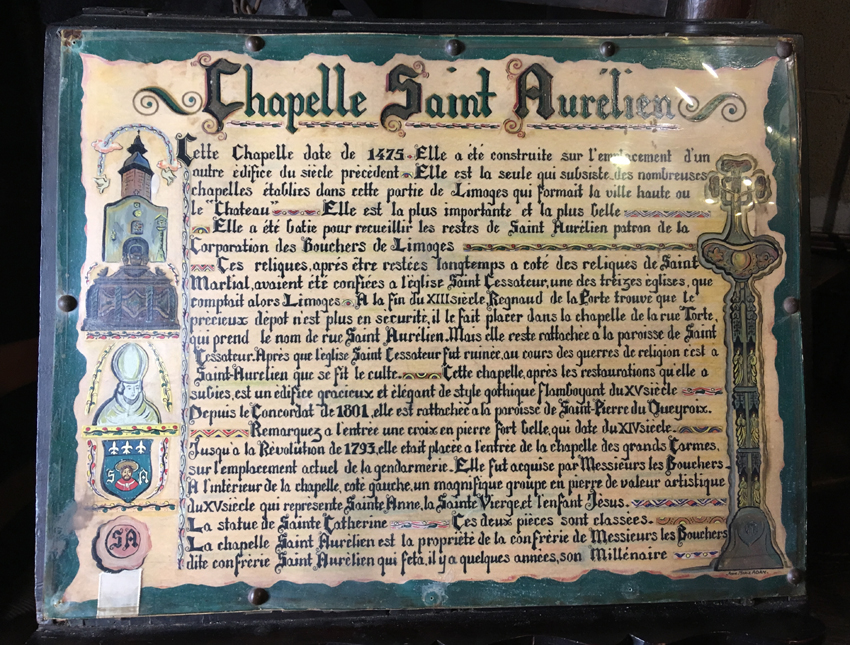 Chapelle Saint Aurélien
Cette Chapelle date de 1475 - Elle a été construite sur l'emplacement d'un
autre édifice du siècle précédent - Elle est la seule qui subsiste des nombreuses
chapelles établies dans cette partie de Limoges qui formait la ville haute ou
le "Chateau" Elle est la plus importante et la plus belle
Elle a été batie pour recueillir les restes de Saint Aurélien patron de la
Corporation des Bouchers de Limoges
Ces reliques, après être restées longtemps a coté des reliques de Saint
Martial, avaient été confiées a l'église Saint Cessateur, une des treizes églises, que
comptait alors Limoges - A la fin du XIII siècle, Regnaud de la Porte trouve que le
précieux dépot n'est plus en sécurité, il le fait placer dans la chapelle de la rue Torte,
qui prend le nom de rue Saint Aurélien. Mais elle reste rattachée a la paroisse de Saint
Cessateur. Après que l'église Saint Cessateur fut ruinée, au cours des guerres de religion c'est a
Saint-Aurélien que se fit le culte. Cette chapelle, après les restaurations qu'elle a
subies, est un édifice gracieux et élégant de style gothique flamboyant du XV siècle
Depuis le Concordat de 1801, elle est rattachée a la paroisse de Saint-Pierre du Queyroix.
Remarquez a l'entrée une croix en pierre fort belle, qui date du XIV siècle.
Jusqu'a la Révolution de 1793, elle était placée a l'entrée de la chapelle des grands Carmes,
sur l'emplacement actuel de la gendarmerie. Elle fut acquise par Messieurs les Bouchers -
A l'intérieur de la chapelle, coté gauche, un magnifique groupe en pierre de valeur artistique
du XV siècle qui représente Sainte Anne, la Sainte Vierge, et l'enfant Jésus.
La statue de Sainte Catherine Ces deux pièces sont classées.
La chapelle Saint Aurélien est la propriété de la confrérie de Messieurs les Bouchers
dite confrérie Saint Aurélien qui fêta, il y a quelques années, son Millénaire
S A
SA